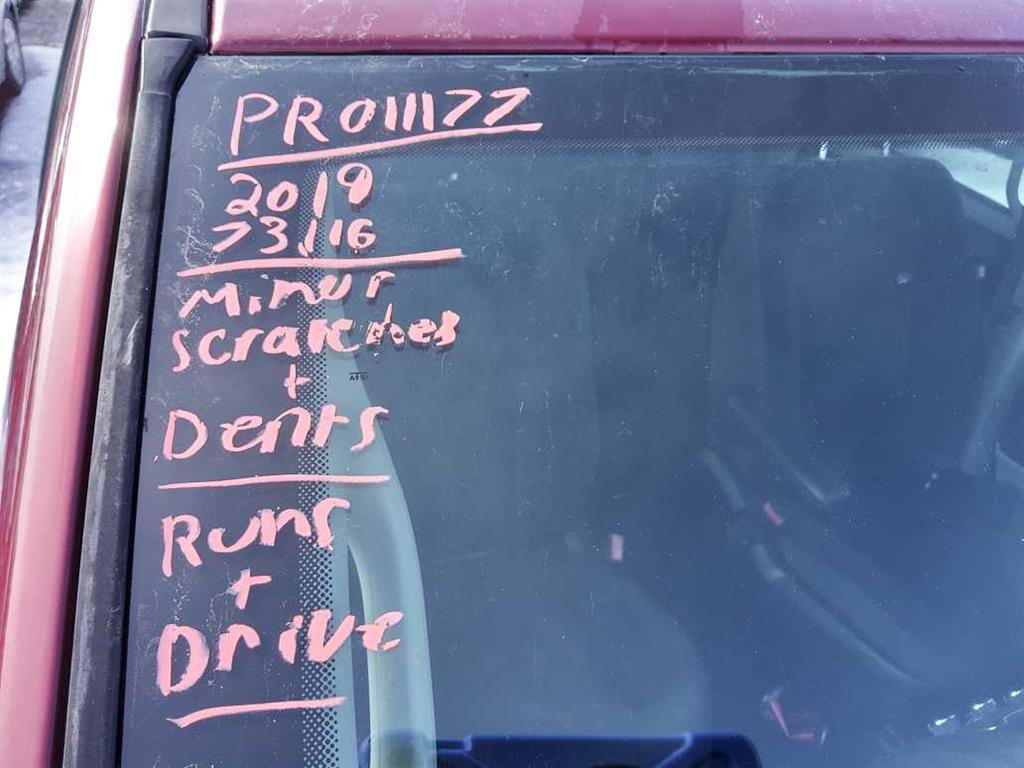 PR011177
2019
73,116
Minur
scratches
+
Dents
Runs
+
Drive